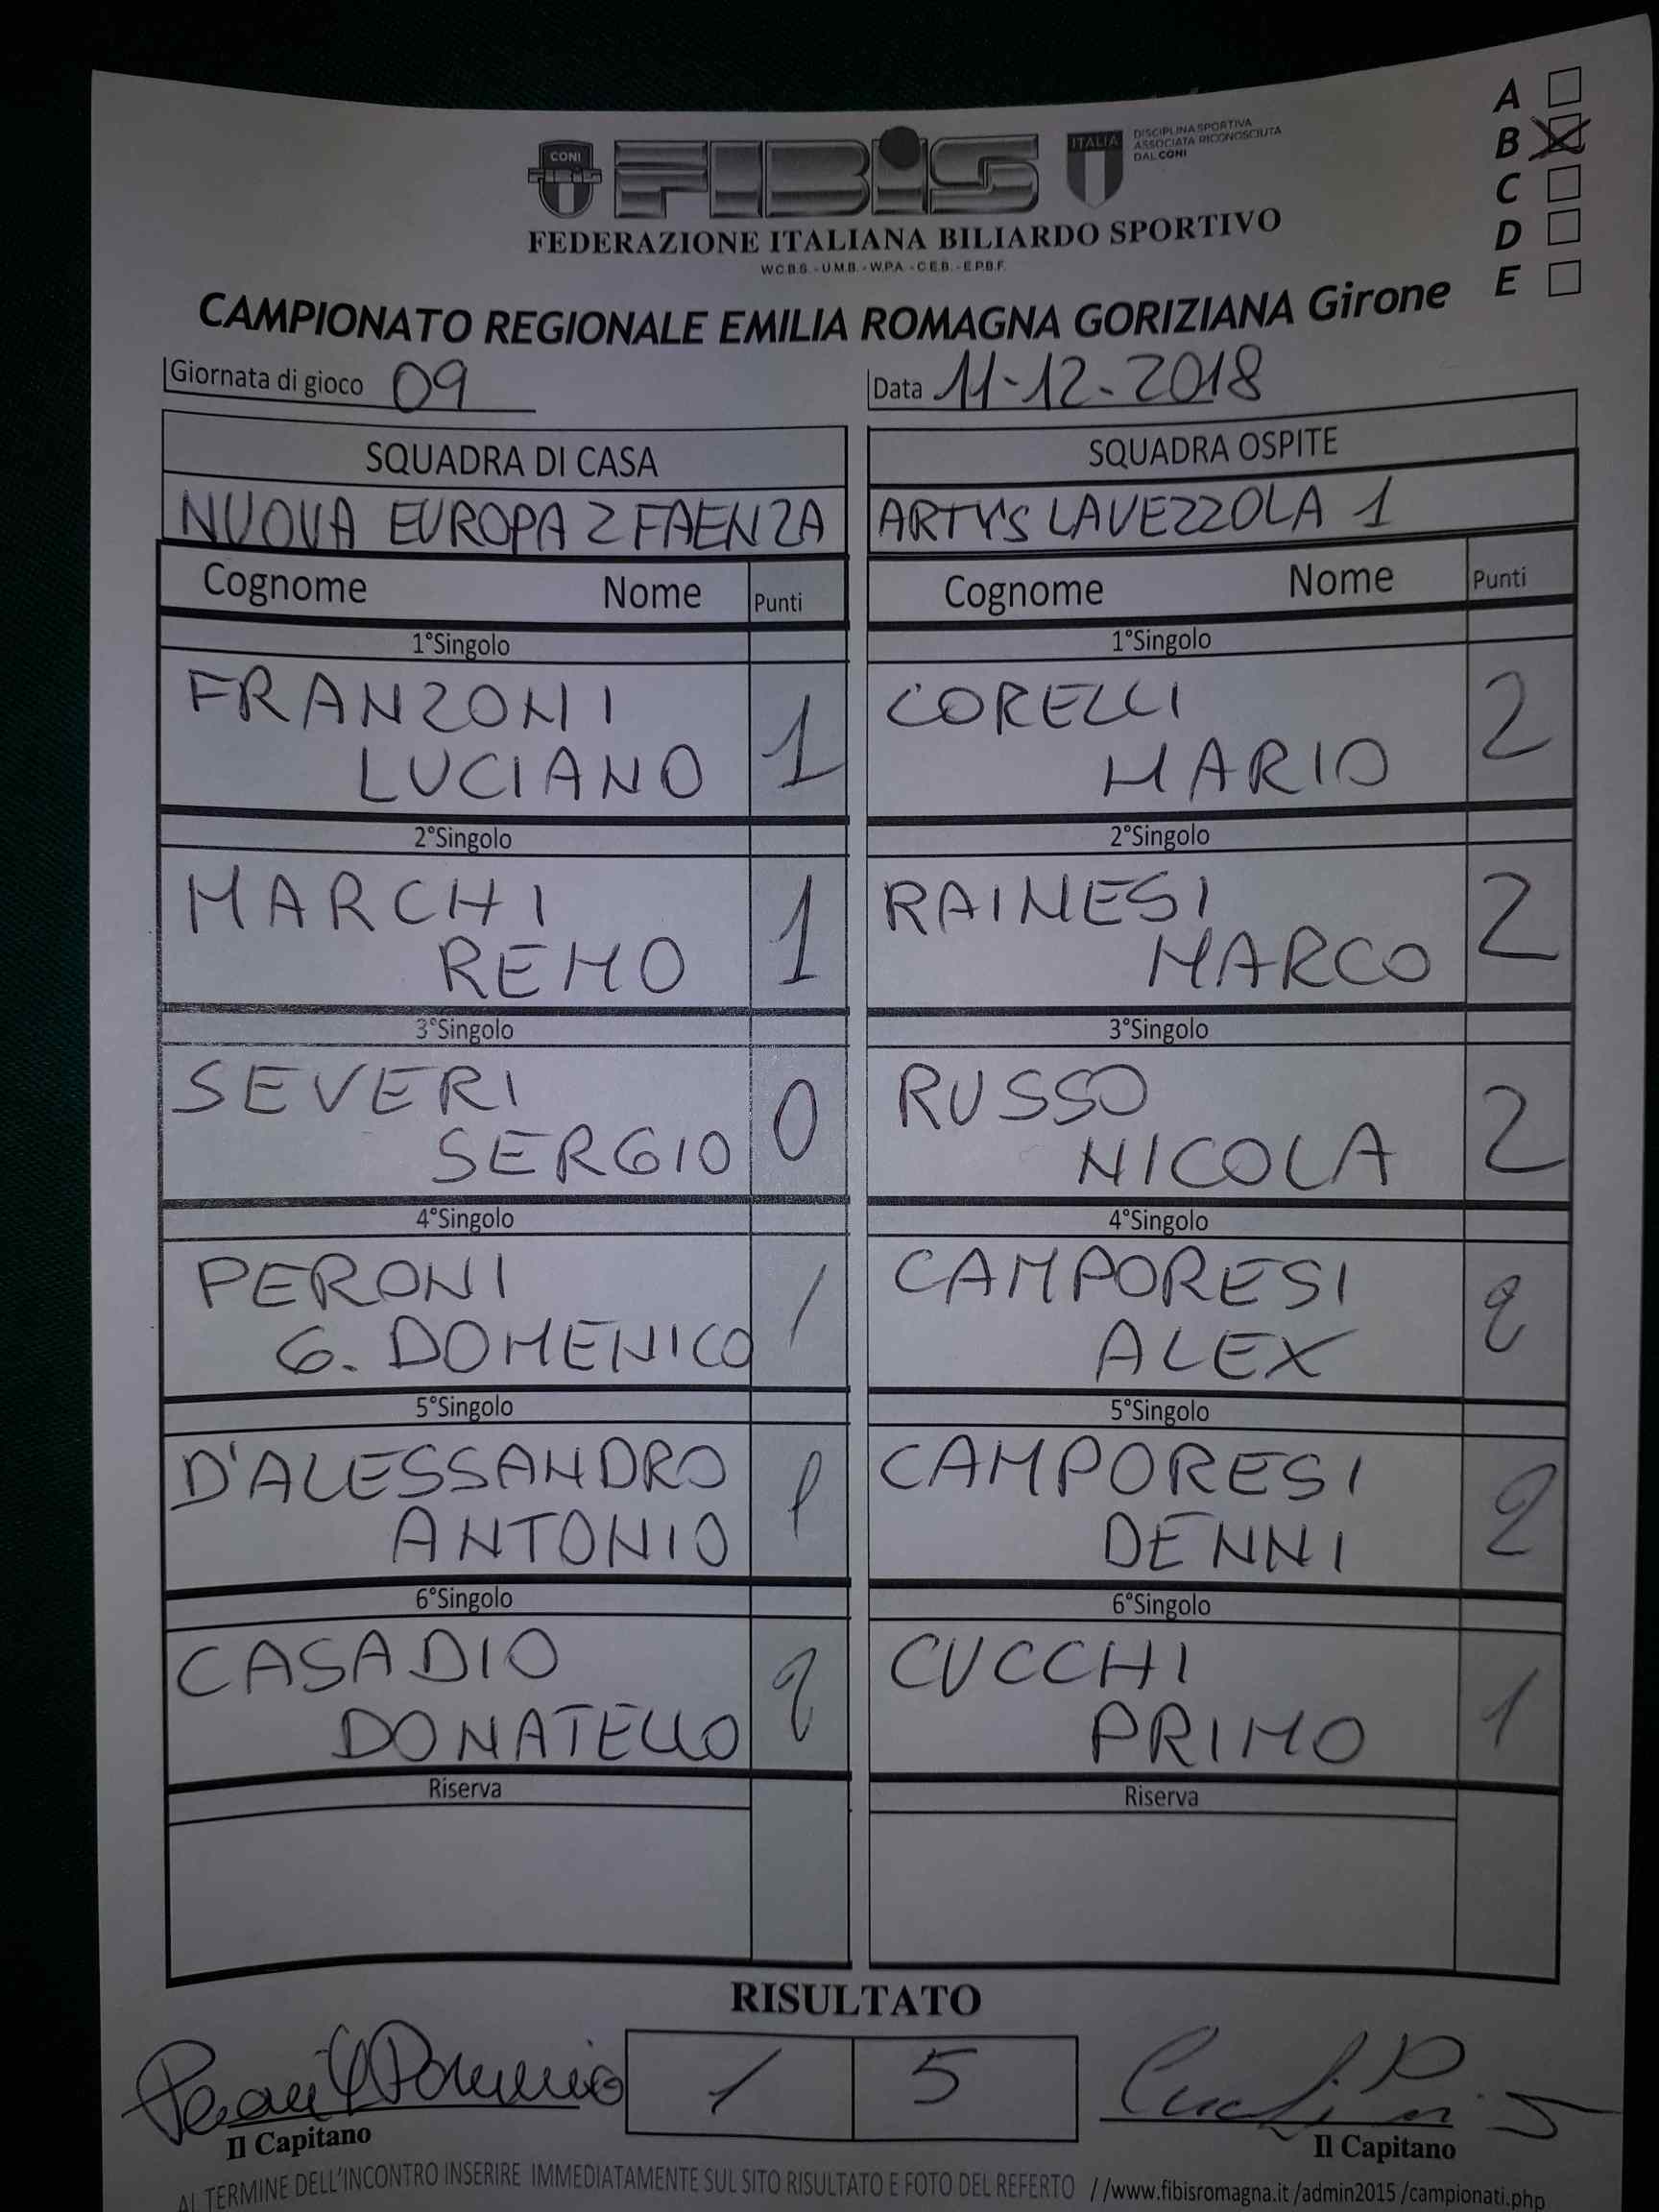 A
B
C
D
E
CONI
FIBIS
FIBiS
ITALIA
DISCIPLINA SPORTIVA
ASSOCIATA RICONOSCIUTA
DAL CONI
FEDERAZIONE ITALIANA BILIARDO SPORTIVO
W.C.B.S. - U.M.B. - W.P.A. - C.E.B. - E.P.B.F.
CAMPIONATO REGIONALE EMILIA ROMAGNA GORIZIANA Girone
Giornata di gioco 09
Data 11-12-2018
SQUADRA DI CASA
SQUADRA OSPITE
NUOVA EUROPA 2 FAENZA
ARTYS LAVEZZOLA 1
Cognome Nome Punti
Cognome Nome Punti
1°Singolo
1°Singolo
FRANZONI
LUCIANO 1
CORELLI
MARIO 2
2°Singolo
2°Singolo
MARCHI
REMO 1
RAINESI
MARCO 2
3°Singolo
3°Singolo
SEVERI
SERGIO 0
RUSSO
NICOLA 2
4°Singolo
4°Singolo
PERONI
G. DOMENICO 1
CAMPORESI
ALEX 2
5°Singolo
5°Singolo
D'ALESSANDRO
ANTONIO 1
CAMPORESI
DENNI 2
6°Singolo
6°Singolo
CASADIO
DONATELLO 2
CUCCHI
PRIMO 1
Riserva
Riserva
RISULTATO
1 5
Il Capitano
Il Capitano
AL TERMINE DELL'INCONTRO INSERIRE IMMEDIATAMENTE SUL SITO RISULTATO E FOTO DEL REFERTO //www.fibisromagna.it /admin2015 /campionati.php